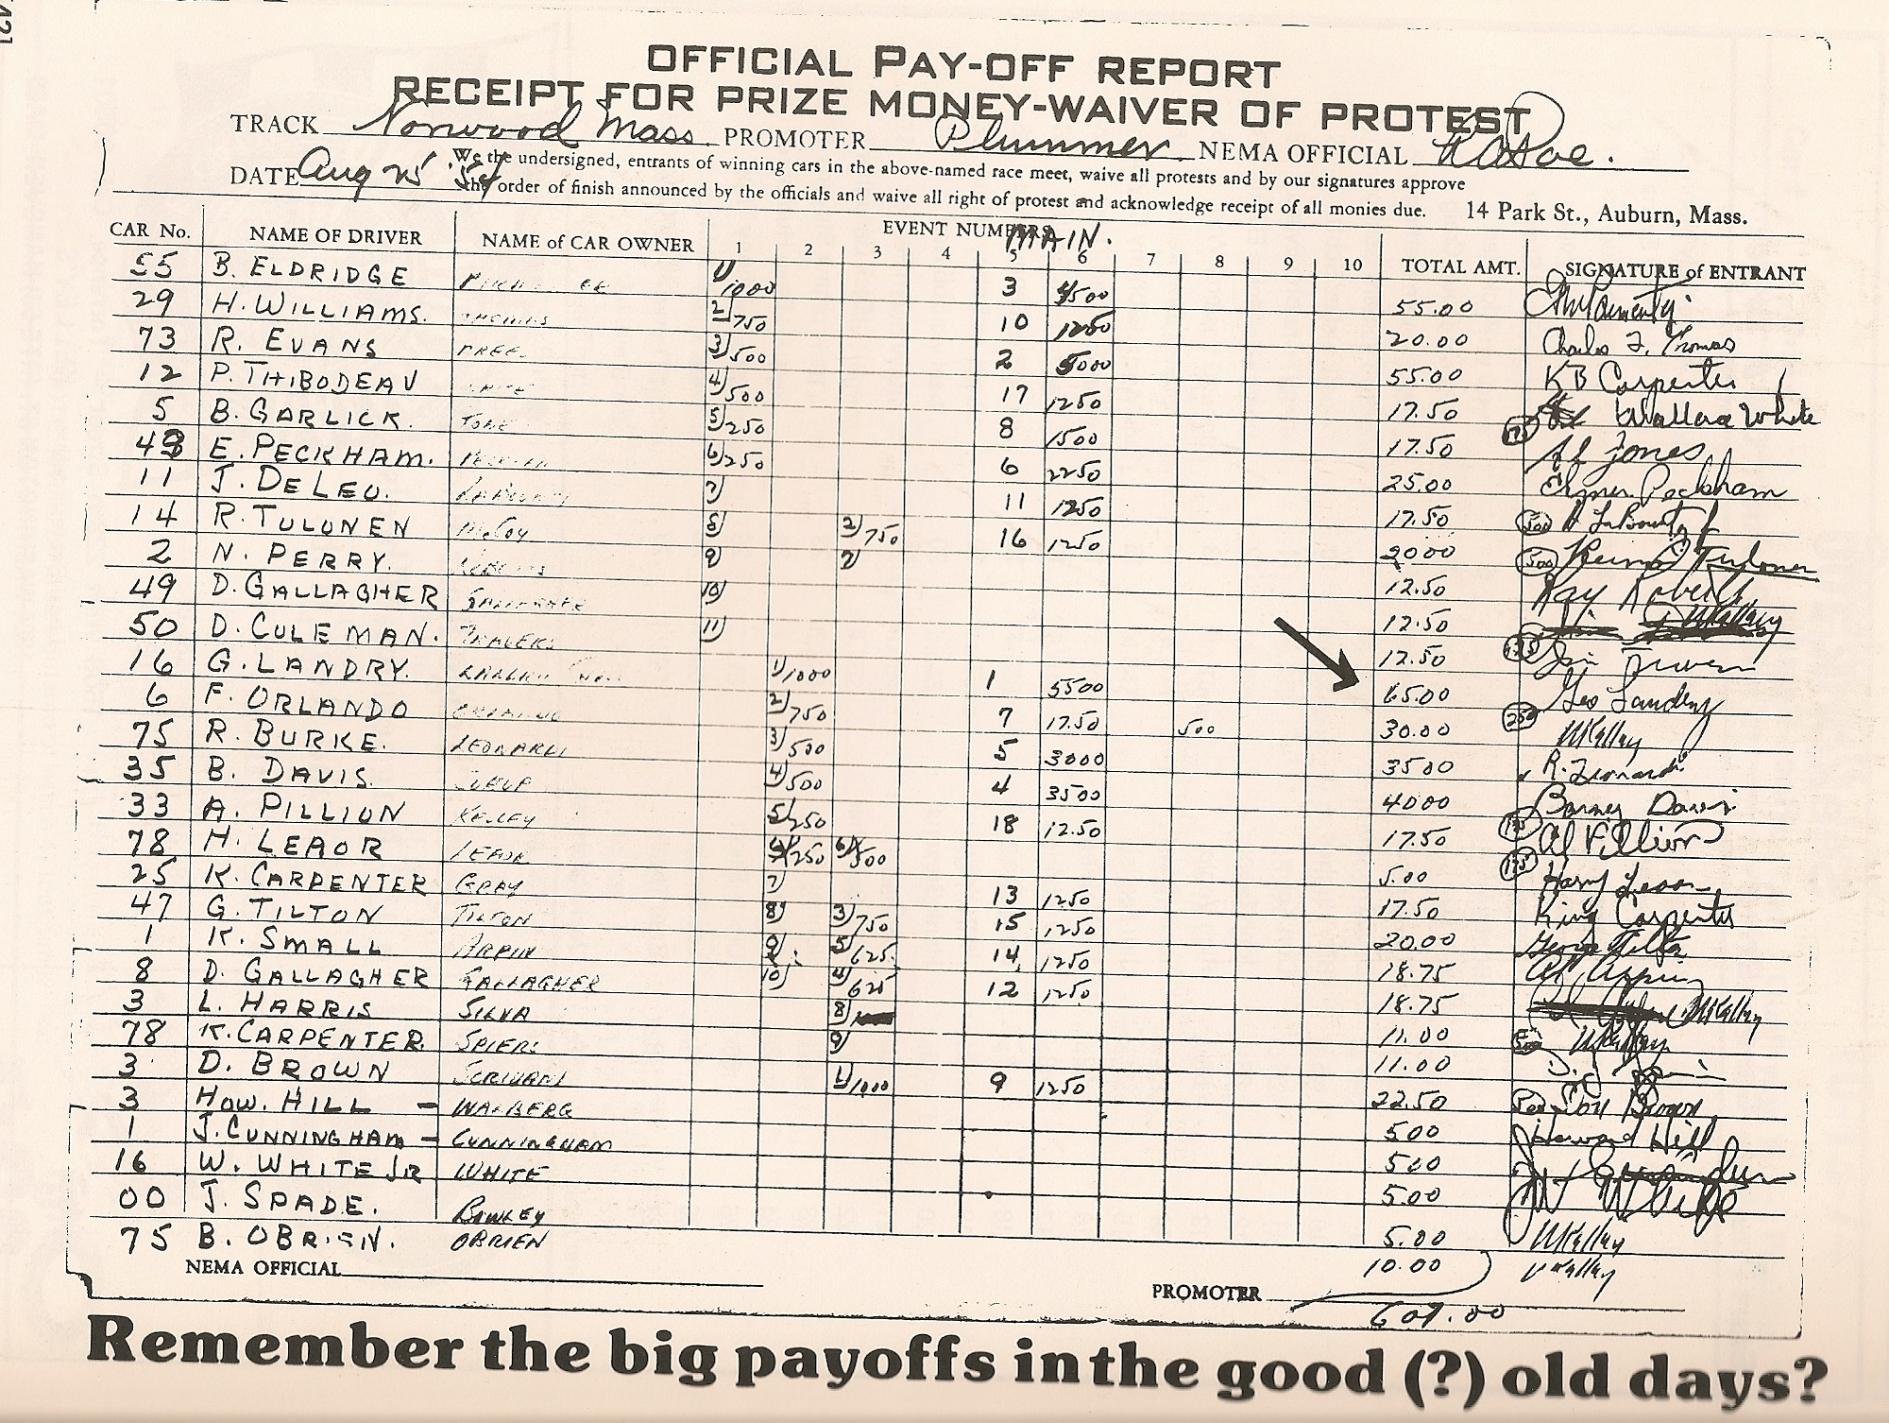 OFFICIAL PAY-OFF REPORT
RECEIPT FOR PRIZE MONEY-WAIVER OF PROTEST
TRACK Norwood Mass. PROMOTER Plummer NEMA OFFICIAL
DATE Aug 25 '54 We the undersigned, entrants of winning cars in the above-named race meet, waive all protests and by our signatures approve
the order of finish announced by the officials and waive all right of protest and acknowledge receipt of all monies due. 14 Park St., Auburn, Mass.
CAR No. NAME OF DRIVER NAME of CAR OWNER EVENT NUMBERS MAIN. TOTAL AMT. SIGNATURE of ENTRANT
1 2 3 4 5 6 7 8 9 10
55 B. ELDRIDGE 1/1000 3 4500 55.00
29 H. WILLIAMS. THOMAS 2/750 10 1250 20.00 Charles F. Thomas
73 R. EVANS 3/500 2 5000 55.00 KB Carpenter
12 P. THIBODEAU WHITE 4/500 17 1250 17.50 Wallace White
5 B. GARLICK. 5/250 8 1500 17.50 Al Jones
48 E. PECKHAM. 6/250 6 2250 25.00 Elmer Peckham
11 J. DELEO. 7) 11 1250 17.50
14 R. TULONEN McCoy 8) 2/750 16 1250 20.00
2 N. PERRY. 9) 7) 12.50 Ray Roberts
49 D. GALLAGHER GALLAGHER 10) 12.50
50 D. COLEMAN. 11) 12.50
16 G. LANDRY. 1/1000 1 5500 65.00 Geo Landry
6 F. ORLANDO 2/750 7 17.50 500 30.00
75 R. BURKE. LEONARDI 3/500 5 3000 35.00 R. Leonardi
35 B. DAVIS. 4/500 4 3500 40.00 Barney Davis
33 A. PILLION KELLEY 5/250 18 12.50 17.50 Al Pillion
78 H. LEAOR LEAOR 6/250 6/500 5.00 Harry Leaor
25 K. CARPENTER GRAY 7) 13 1250 17.50 King Carpenter
47 G. TILTON TILTON 8) 3/750 15 1250 20.00 George Tilton
1 K. SMALL ARPIN 9) 5/625 14 1250 18.75 Al. Arpin
8 D. GALLAGHER GALLAGHER 10) 4/625 12 1250 18.75
3 L. HARRIS SILVA 8) 11.00
78 K. CARPENTER SPIERS 9) 11.00
3 D. BROWN SCRIVANI 1/1000 9 1250 22.50 Don Brown
3 HOW. HILL - WALBERG 5.00 Howard Hill
1 J. CUNNINGHAM - CUNNINGHAM 5.00
16 W. WHITE JR WHITE 5.00
00 J. SPADE. ROWLEY 5.00
75 B. OBRIEN. OBRIEN 10.00
NEMA OFFICIAL PROMOTER
607.00
Remember the big payoffs in the good (?) old days?